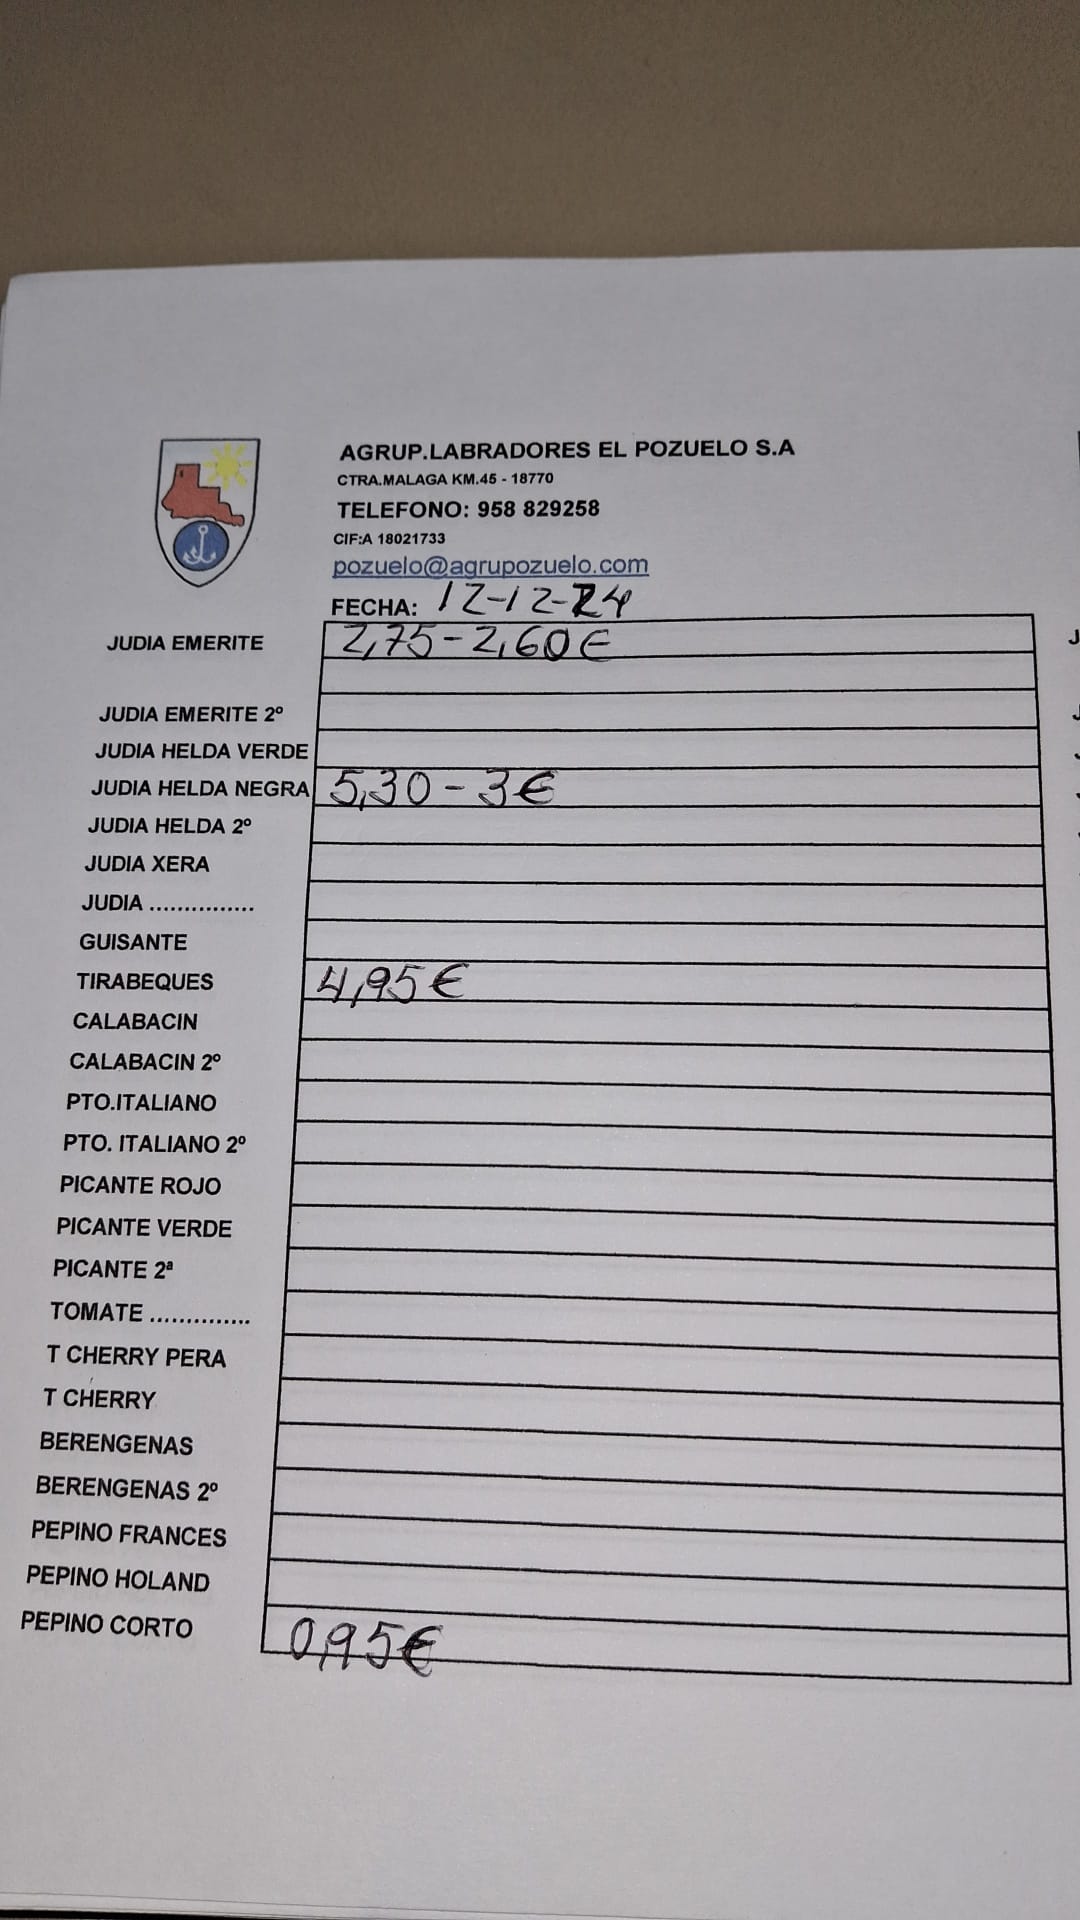 AGRUP.LABRADORES EL POZUELO S.A
CTRA.MALAGA KM.45 - 18770
TELEFONO: 958 829258
CIF:A 18021733
pozuelo@agrupozuelo.com
FECHA: 12-12-24
JUDIA EMERITE 2,75-2,60€
JUDIA EMERITE 2º
JUDIA HELDA VERDE
JUDIA HELDA NEGRA 5,30-3€
JUDIA HELDA 2º
JUDIA XERA
JUDIA ...............
GUISANTE
TIRABEQUES 4,95€
CALABACIN
CALABACIN 2º
PTO.ITALIANO
PTO. ITALIANO 2º
PICANTE ROJO
PICANTE VERDE
PICANTE 2ª
TOMATE ..............
T CHERRY PERA
T CHERRY
BERENGENAS
BERENGENAS 2º
PEPINO FRANCES
PEPINO HOLAND
PEPINO CORTO 0,95€